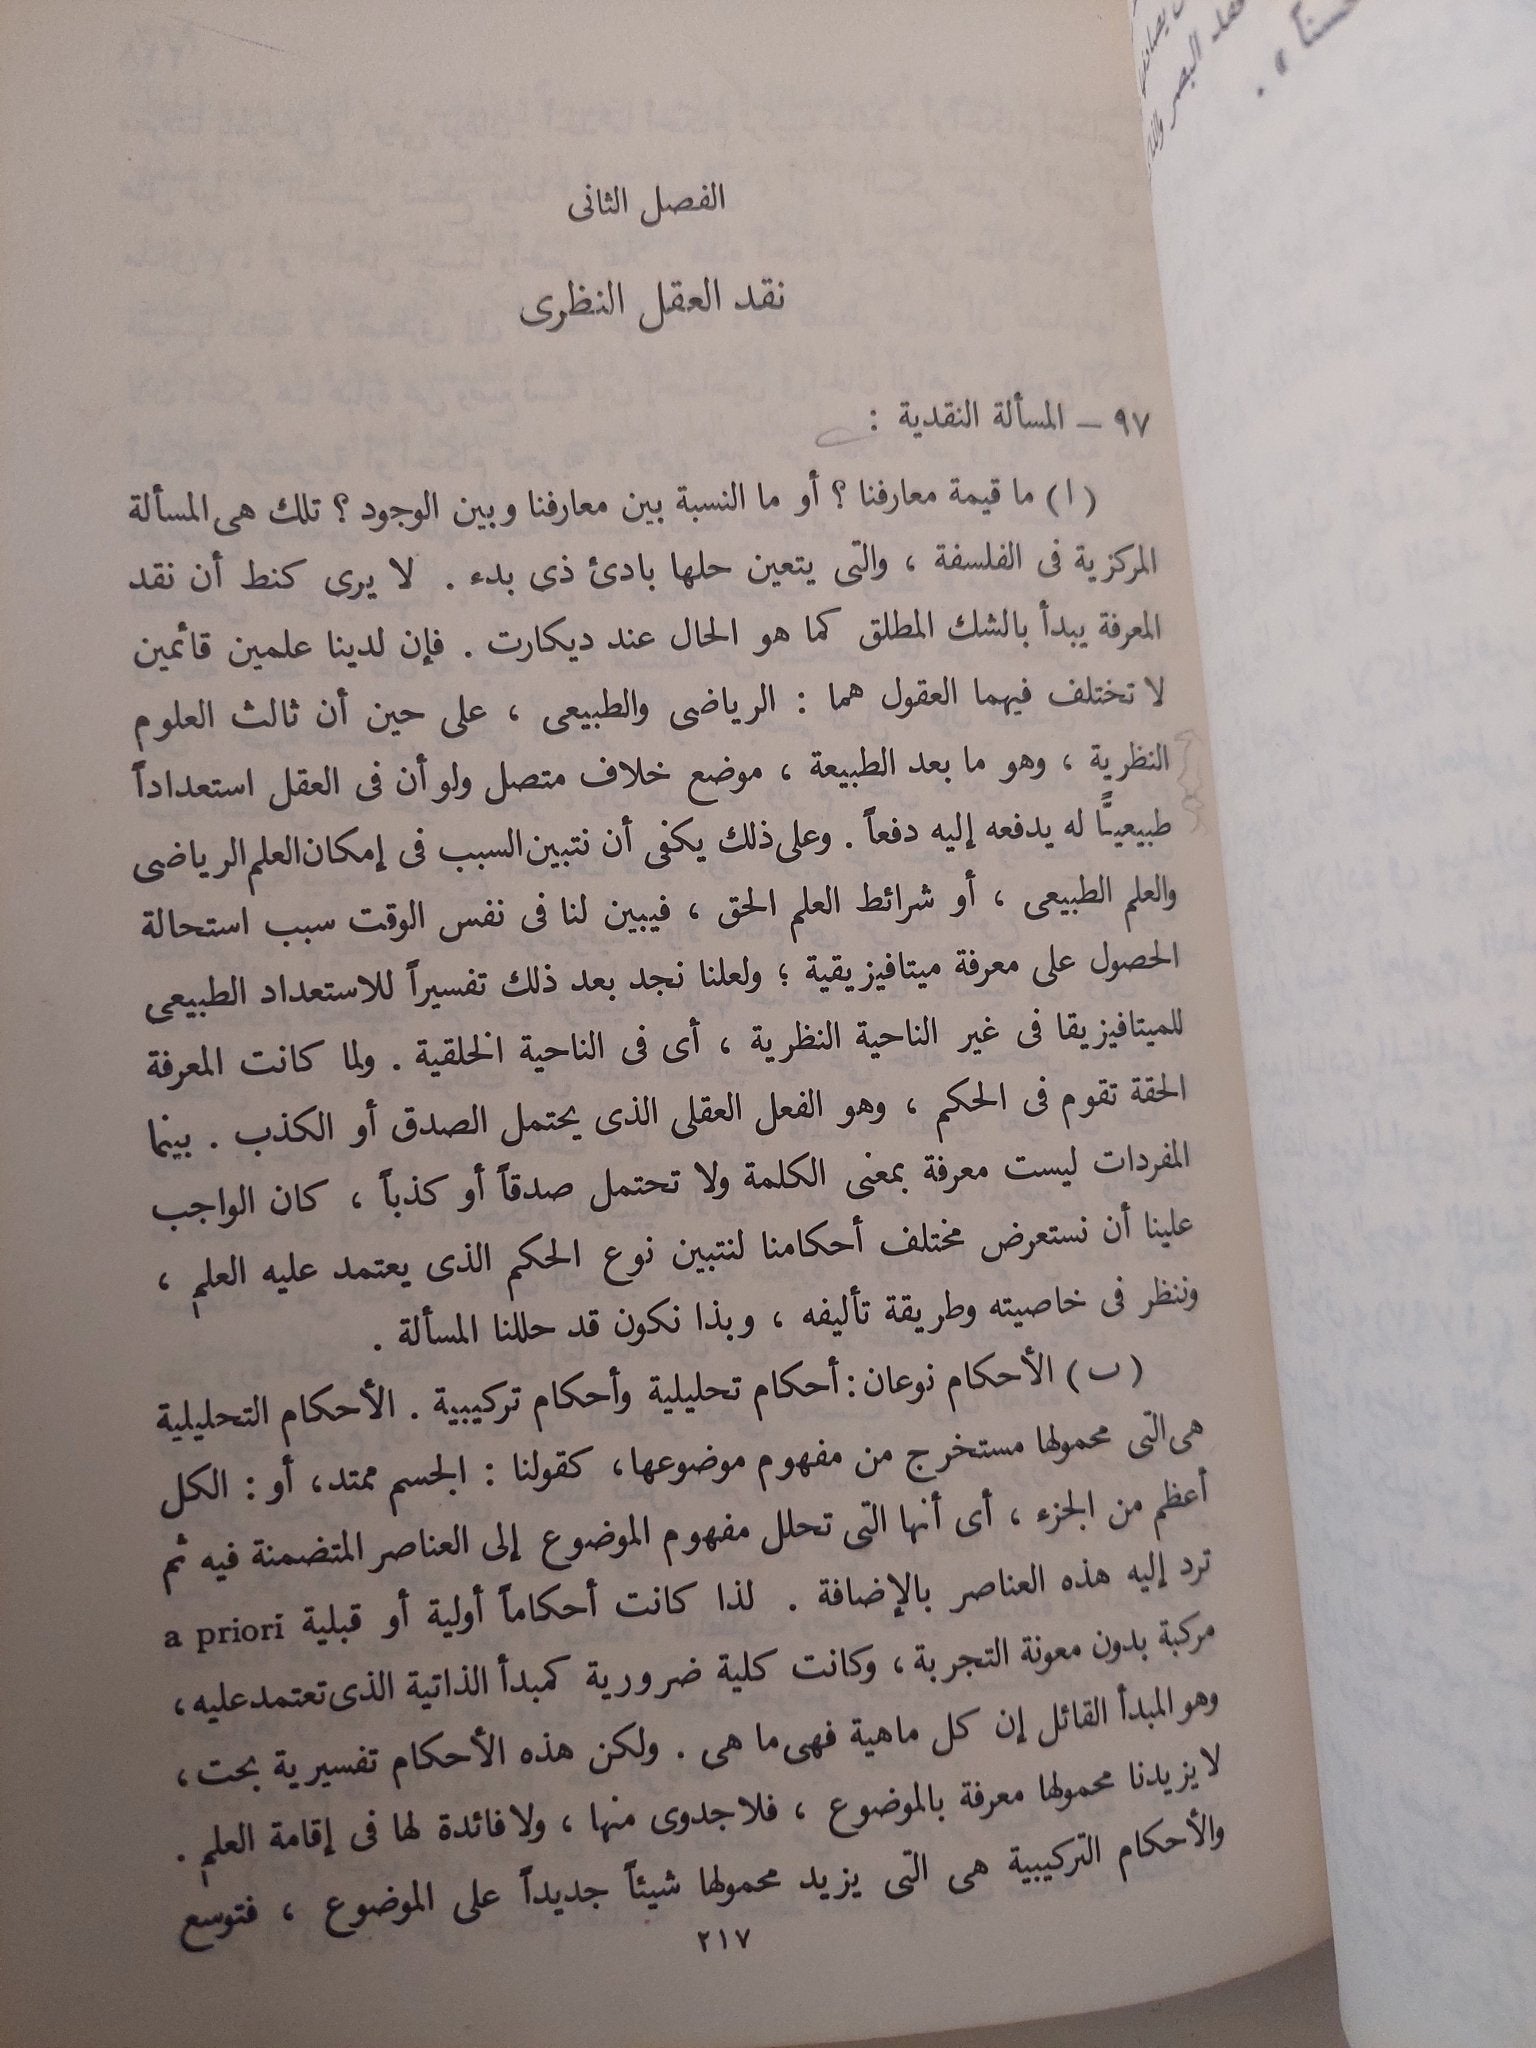 الفصل الثانى
نقد العقل النظرى
٩٧ – المسألة النقدية :
(ا) ما قيمة معارفنا ؟ أو ما النسبة بين معارفنا وبين الوجود ؟ تلك هى المسألة
المركزية فى الفلسفة ، والتى يتعين حلها بادئ ذى بدء . لا يرى كنط أن نقد
المعرفة يبدأ بالشك المطلق كما هو الحال عند ديكارت . فإن لدينا علمين قائمين
لا تختلف فيهما العقول هما : الرياضى والطبيعى ، على حين أن ثالث العلوم
النظرية ، وهو ما بعد الطبيعة ، موضع خلاف متصل ولو أن فى العقل استعداداً
طبيعيـًّا له يدفعه إليه دفعاً . وعلى ذلك يكفى أن نتبين السبب فى إمكان العلم الرياضى
والعلم الطبيعى ، أو شرائط العلم الحق ، فيبين لنا فى نفس الوقت سبب استحالة
الحصول على معرفة ميتافيزيقية ؛ ولعلنا نجد بعد ذلك تفسيراً للاستعداد الطبيعى
للميتافيزيقا فى غير الناحية النظرية ، أى فى الناحية الخلقية . ولما كانت المعرفة
الحقة تقوم فى الحكم ، وهو الفعل العقلى الذى يحتمل الصدق أو الكذب . بينما
المفردات ليست معرفة بمعنى الكلمة ولا تحتمل صدقاً أو كذباً ، كان الواجب
علينا أن نستعرض مختلف أحكامنا لنتبين نوع الحكم الذى يعتمد عليه العلم ،
وننظر فى خاصيته وطريقة تأليفه ، وبذا نكون قد حللنا المسألة .
(ب) الأحكام نوعان : أحكام تحليلية وأحكام تركيبية . الأحكام التحليلية
هى التى محمولها مستخرج من مفهوم موضوعها، كقولنا : الجسم ممتد، أو : الكل
أعظم من الجزء ، أى أنها التى تحلل مفهوم الموضوع إلى العناصر المتضمنة فيه ثم
ترد إليه هذه العناصر بالإضافة . لذا كانت أحكاماً أولية أو قبلية a priori
مركبة بدون معونة التجربة ، وكانت كلية ضرورية كمبدأ الذاتية الذى تعتمد عليه ،
وهو المبدأ القائل إن كل ماهية فهى ما هى . ولكن هذه الأحكام تفسيرية بحت ،
لا يزيدنا محمولها معرفة بالموضوع ، فلا جدوى منها ، ولا فائدة لها فى إقامة العلم .
والأحكام التركيبية هى التى يزيد محمولها شيئاً جديداً على الموضوع ، فتوسع
٢١٧
البصر
حسناً » .